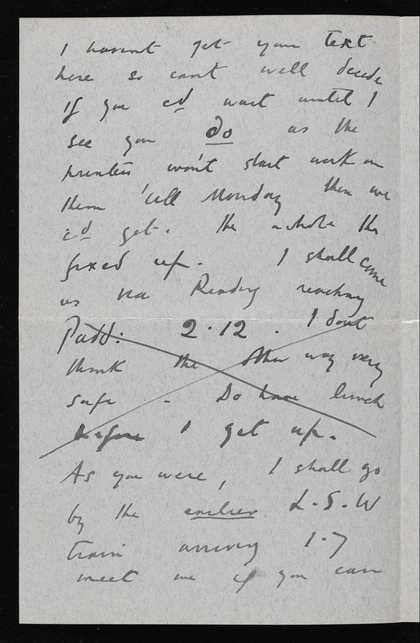 I havent got your text
here so cant well decide
If you cd wait until I
see you do as the
printers won't start work on
them 'till Monday then we
cd get. the whole thg
fixed up. I shall come
us via Reading reaching
Padd: 2.12. I dont
think the other way very
safe - Do have lunch
before I get up.
As you were, I shall go
by the earlier L.S.W
train arriving 1.7
meet me if you can